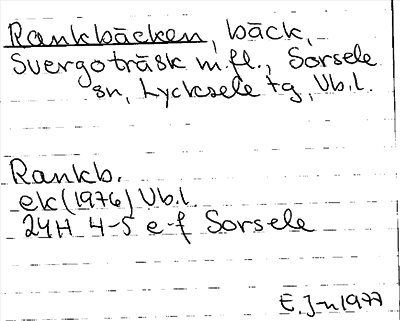 Rankbäcken, bäck,
Svergoträsk m.fl., Sorsele
sn, Lycksele tg, Vb.l.
Rankb.
ek (1976) Vb.l.
24H 4-5 e-f Sorsele
E.J-n 1977